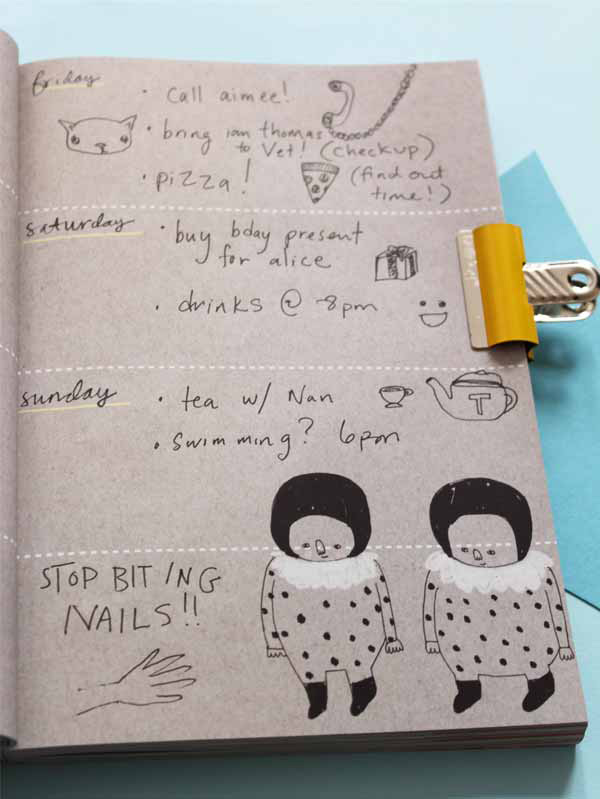 friday
• call aimee!
• bring ian thomas
to Vet! (checkup)
• pizza! (find out
time!)
saturday
• buy bday present
for alice
• drinks @ ~8pm
sunday
• tea w/ Nan
T
• swimming? 6pm
STOP BITING
NAILS!!